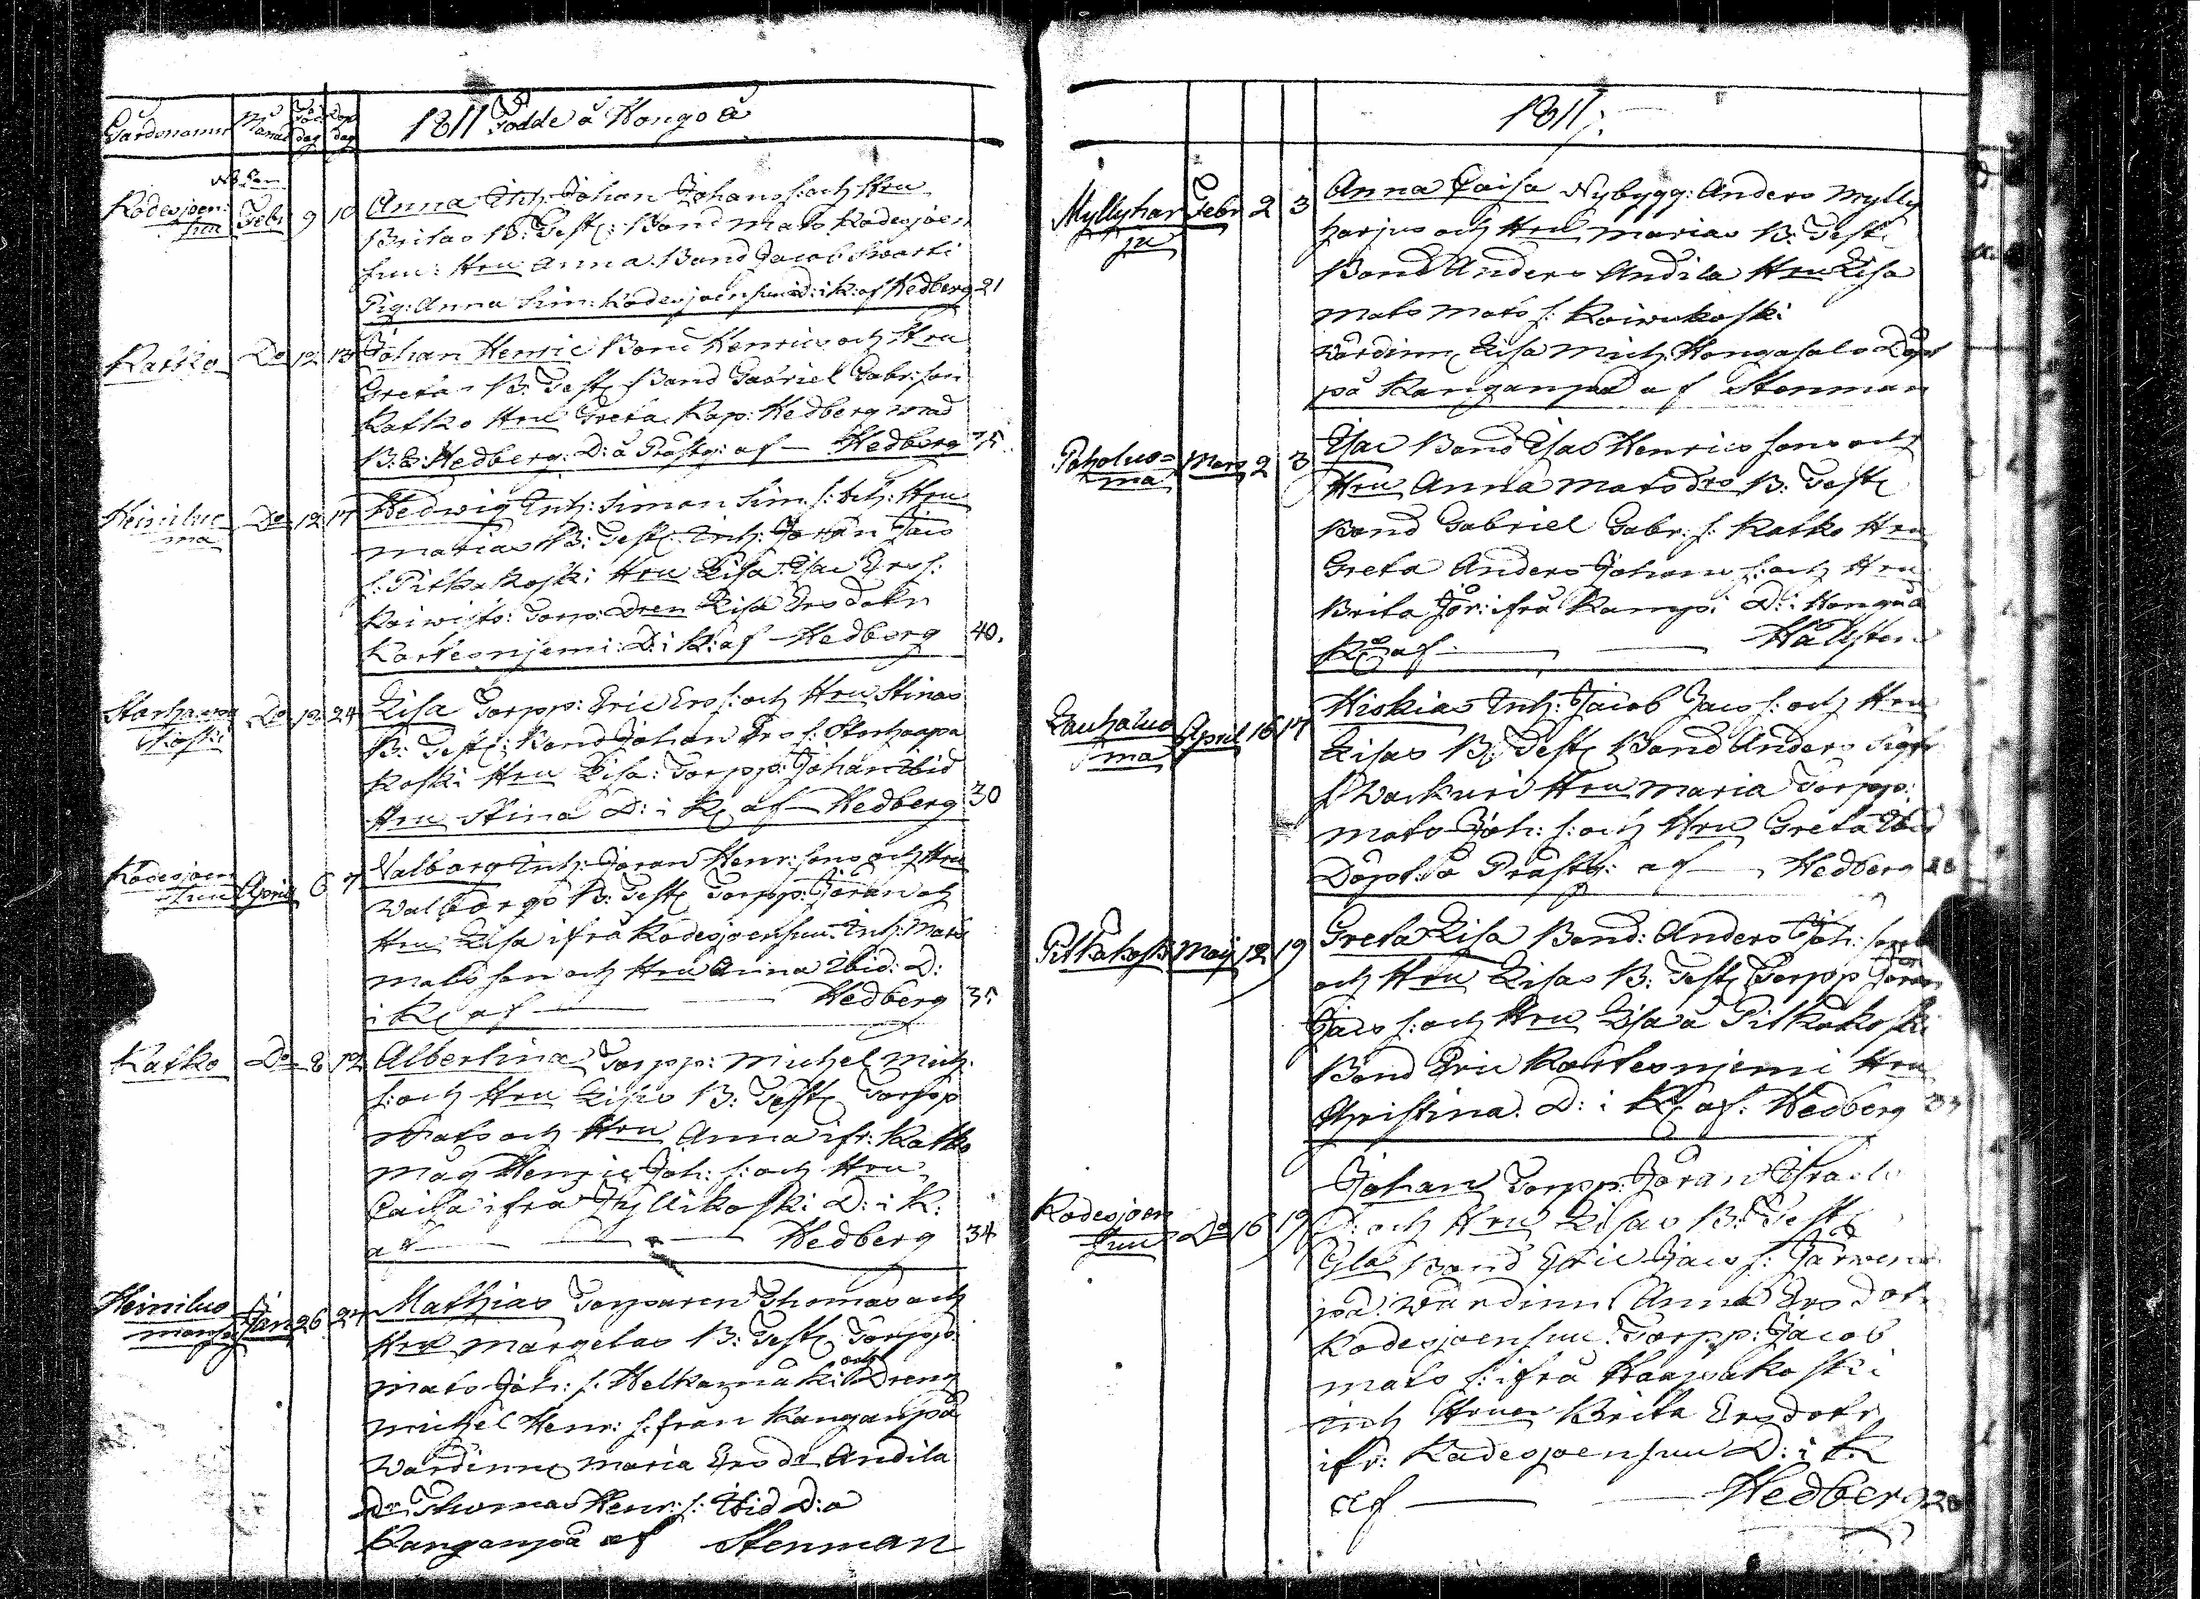 Gårdsnamn Månad Föd dag Döp dag 1811 Födde å Hongo å
Kodesjoen Febr 9 10 Anna Inh. Johan Johans s: och Hru
suu Britas B: Test: Bond Mats Kodesjoen
suu: Hru Anna. Bond Jacob Swarti
Pig: Anna Sim: Kodesjoensuu D: i K: af Hedberg 21
Katko Do 12 13 Johan Henric Bond Henrics och Hru
Gretas B: Test Bond Gabriel Gabr: son
Katko Hru Greta Kap: Hedberg med
B: Hedberg: D: å Prästg: af Hedberg 35
Heiniluo Do 12 17 Hedwig Inh: Simon Sim. s: och Hru
ma Marias B: Test: Inh: Johan Jacs
s: Pitkäkoski Hru Lisa. Esac Ers s:
Koiwisto: Torp: Dren Lisa Ersdotr
Kortesnjemi: D: i K: af Hedberg 40.
Storhaapa Do 12 24 Lisa Torpp: Eric Ers s: och Hru Stinas
koski B: Test: Bond Johan Ers s: Storhaapa
koski Hru Lisa: Torpp: Johan Ibid
Hru Stina D: i K af Hedberg 30
Kodesjoen
suu April 6 7 Valborg Inh: Joran Henr: sons och Hru
Walborgs B: Test Torpp: Joran och
Hru Lisa ifrå Kodesjoensuu. Inh: Mats
Mats son och Hru Anna Ibid: D:
i K af Hedberg 35
Katko Do 8 12 Albertina Torpp: Michel Mich
s: och Hru Lisas B: Test Torpp
Mats och Hru Anna ifr: Katko
Måg Henric Joh: s: och Hru
Caisa ifrå Jyllikoski D: i K:
af Hedberg 34
Heiniluo Jan 26 27 Mathias Torparen Thomas och
mansa Hru Margetas B: Test Torpp:
Mats Joh: s: Kelkamäki och Dreng
Michel Henr: s: från Kanganpä
Wärdinn Maria Ers dr Andila
Dr Thomas Henr: s: Ibid D: a
Kanganpä af Stenman
1811:
Myllyhar Febr 2 3 Anna Caisa Nybygg: Anders Mylly
ju harjus och Hru Marias B: Test:
Bond Anders Andila Hru Lisa
Mats Mats s: Koiwukoski
Wärdinn Lisa Mich. Hongasalo Döpt
på Kanganpä af Stenman
Paholuo= Mars 2 3 Esac Bond Esac Henrics sons och
ma Hru Anna Mats drs B: Test
Bond Gabriel Gabr: s: Katko Hru
Greta Anders Johans s: och Hru
Brita Jör: ifrå Kamppi D: i Hongo å
K af Hällsten
Lauhaluo April 16 17 Hiskias Inh: Jacob Jacs s: och Hru
ma Lisas B: Test Bond Anders Sigfr
s Wackuri Hru Maria Torpp:
Mats Joh: s: och Hru Greta Ibid
Döpt å Prästg: af Hedberg
Pitkäkoski Maij 12 19 Greta Lisa Bond: Anders Joh: sons
och Hru Lisas B: Test Torpp Jöran
Jacs s: och Hru Lisa å Pitkäkoski
Bond Eric Kortesnjemi Hru
Christina. D: i K af. Hedberg
Kodesjoen Do 16 19 Johan Torpp: Jöran Israels
suu s: och Hru Lisas B: Test
Bond Eric Jacs s: Järwen
pä: Wärdinn Anna Ers dotr
Kodesjoensuu: Torpp: Jacob
Mats s: ifrå Haapakoski
och Hrun Brita Ersdotr
ifr: Kodesjoensuu D: i K
af Hedberg